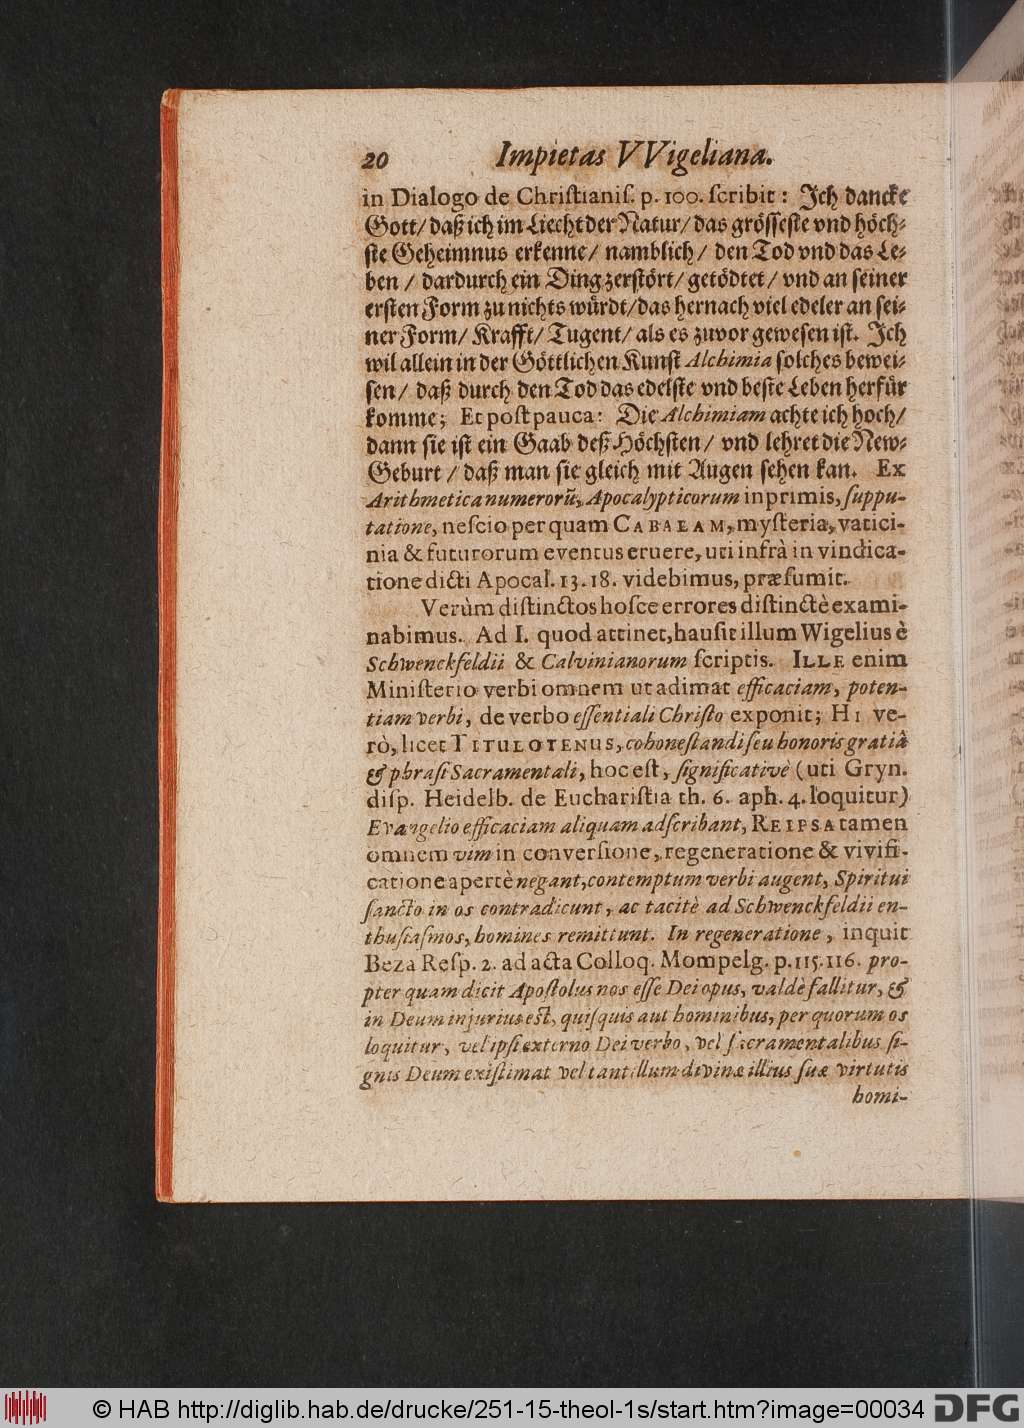 20 Impietas VVigeliana.
in Dialogo de Christianis. p. 100. scribit: Ich dancke
Gott/ daß ich im Liecht der Natur/ das grösseste vnd höch-
ste Geheimnus erkenne/ namblich/ den Tod vnd das Le-
ben / dardurch ein Ding zerstört/ getödtet/ vnd an seiner
ersten Form zu nichts würdt/ das hernach viel edeler an sei-
ner Form/ Krafft/ Tugent/ als es zuvor gewesen ist. Ich
wil allein in der Göttlichen Kunst Alchimia solches bewei-
sen/ daß durch den Tod das edelste vnd beste Leben herfür
komme; Et post pauca: Die Alchimiam achte ich hoch/
dann sie ist ein Gaab deß Höchsten/ vnd lehret die New-
Geburt / daß man sie gleich mit Augen sehen kan. Ex
Arithmetica numerorũ, Apocalypticorum inprimis, suppu-
tatione, nescio per quam CABALAM, mysteria, vatici-
nia & futurorum eventus eruere, uti infrà in vindica-
tione dicti Apocal. 13. 18. videbimus, præsumit.
Verùm distinctos hosce errores distinctè exami-
nabimus. Ad I. quod attinet, hausit illum Wigelius è
Schwenckfeldii & Calvinianorum scriptis. ILLE enim
Ministerio verbi omnem ut adimat efficaciam, poten-
tiam verbi, de verbo essentiali Christo exponit; HI ve-
rò, licet TITULOTENUS, cohonestandi seu honoris gratiâ
& phrasi Sacramentali, hoc est, significativè (uti Gryn.
disp. Heidelb. de Eucharistia th. 6. aph. 4. loquitur)
Evangelio efficaciam aliquam adscribant, REIPSA tamen
omnem vim in conversione, regeneratione & vivifi-
catione apertè negant, contemptum verbi augent, Spiritui
sancto in os contradicunt, ac tacitè ad Schwenckfeldii en-
thusiasmos, homines remittunt. In regeneratione, inquit
Beza Resp. 2. ad acta Colloq. Mompelg. p. 115. 116. pro-
pter quam dicit Apostolus nos esse Dei opus, valdè fallitur, &
in Deum injurius est, quisquis aut hominibus, per quorum os
loquitur, vel ipsi externo Dei verbo, vel sacramentalibus si-
gnis Deum existimat vel tantillum divinæ illius suæ virtutis
homi-
© HAB http://diglib.hab.de/drucke/251-15-theol-1s/start.htm?image=00034
DFG